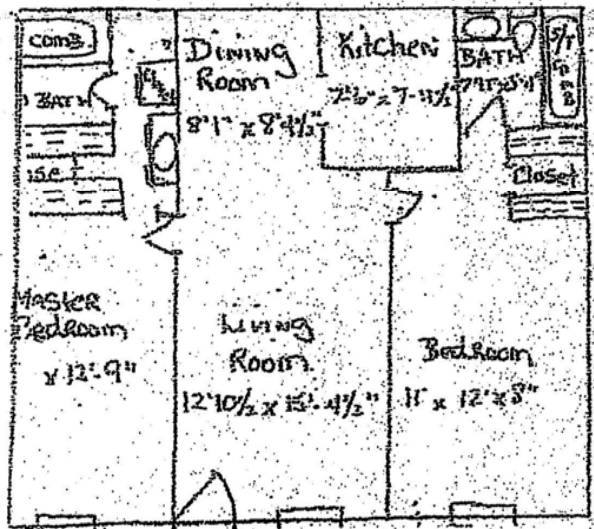 COMB
BATH
DINING
ROOM
8'1" x 8'4½"
Kitchen
BATH
S/T
COMB
Closet
MASTER
Bedroom
x 12'-9"
LIVING
ROOM
12'10½ x 15'-4½"
BedRoom
11' x 12' x 8"